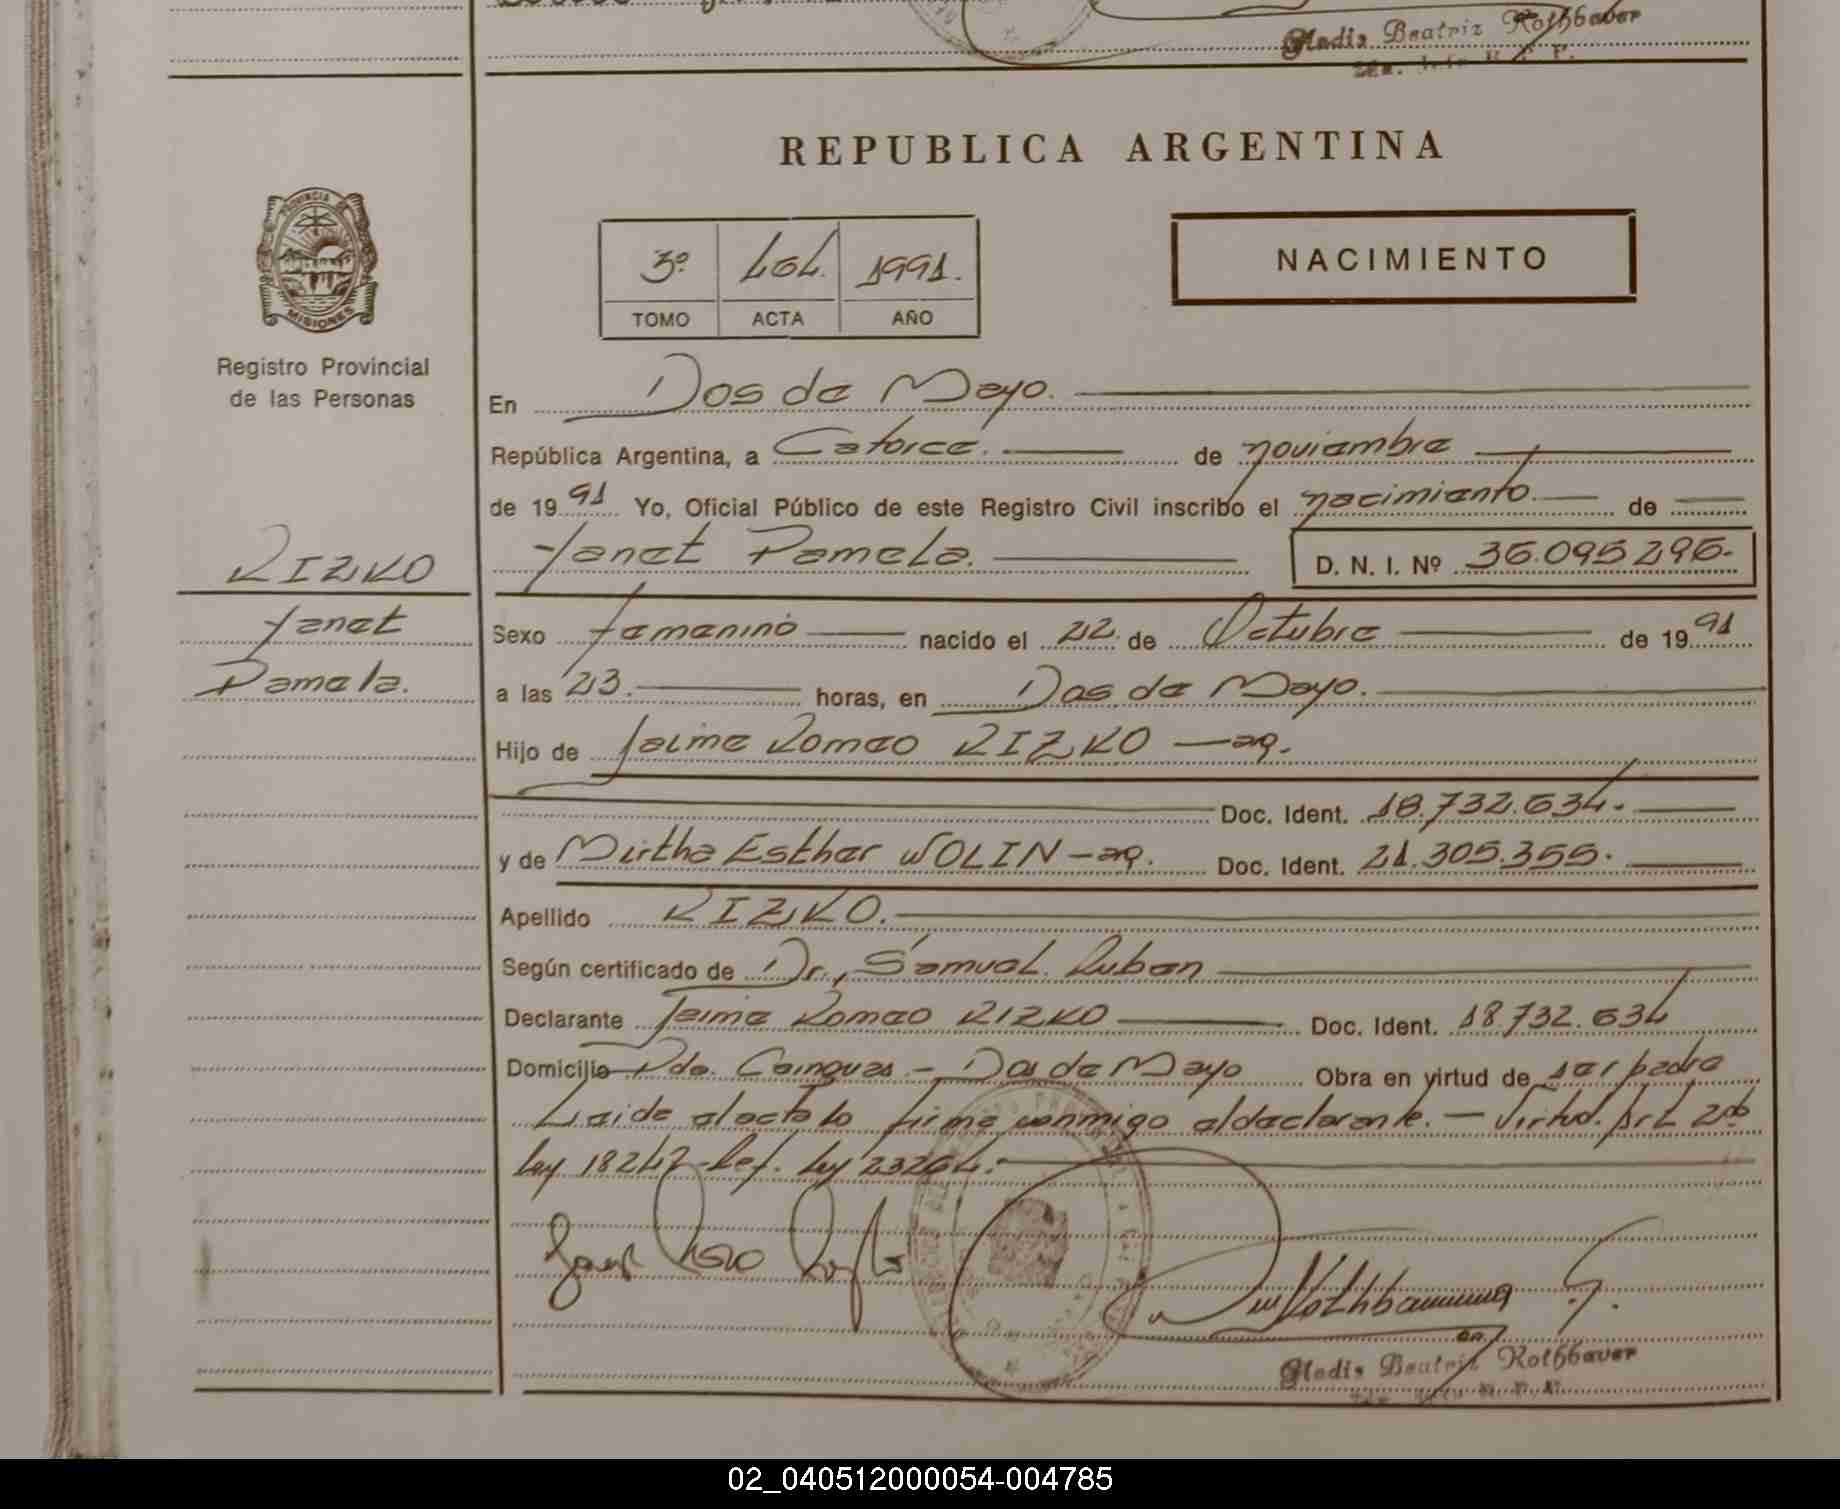 Gladis Beatriz Rothbauer
REPUBLICA ARGENTINA
PROVINCIA
MISIONES
Registro Provincial
de las Personas
3º 404. 1991.
TOMO ACTA AÑO
NACIMIENTO
En Dos de Mayo.
República Argentina, a Catorce. de noviembre
de 1991 Yo, Oficial Público de este Registro Civil inscribo el nacimiento. de
Yanet Pamela. D. N. I. Nº 36.095296.
RIZKO
Yanet
Pamela.
Sexo femenino nacido el 22. de Octubre de 1991
a las 23. horas, en Dos de Mayo.
Hijo de Jaime Romeo RIZKO —ag.
Doc. Ident. 18.732.634.
y de Mirtha Esther WOLIN —ag. Doc. Ident. 21.305.355.
Apellido RIZKO.
Según certificado de Dr., Samuel. Ruben
Declarante Jaime Romeo RIZKO Doc. Ident. 18.732.634
Domicilio Pdo. Cainguas - Dos de Mayo Obra en virtud de ser padre
Leida el acta lo firma conmigo el declarante. — Virtud. Art 2do
ley 18247 Ref. ley 23264.
Rothbauer G.
Gladis Beatriz Rothbauer
02_040512000054-004785